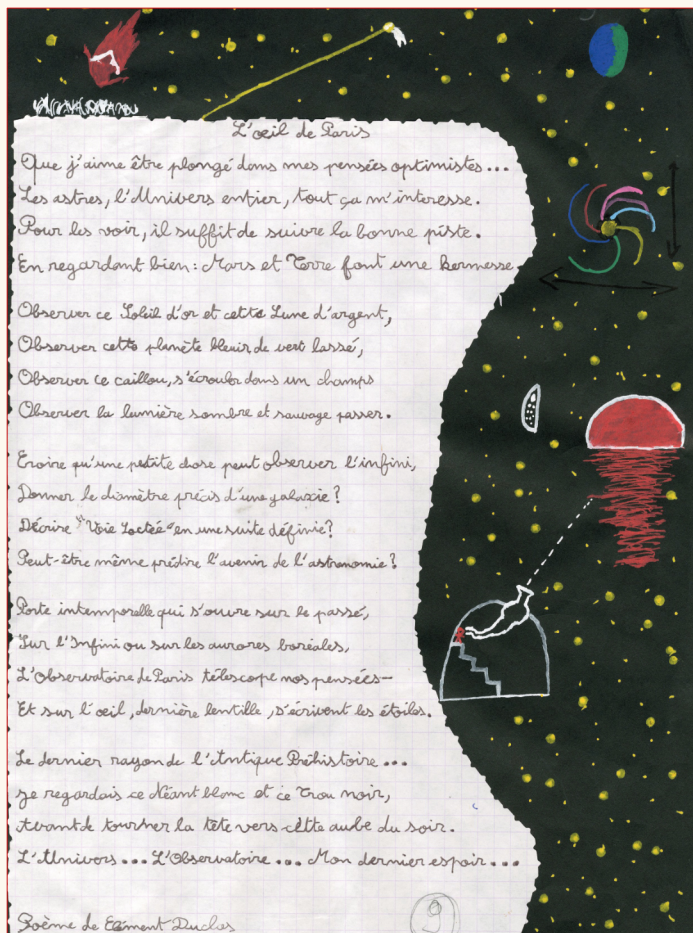 L'œil de Paris
Que j'aime être plongé dans mes pensées optimistes...
Les astres, l'Univers entier, tout ça m'interesse.
Pour les voir, il suffit de suivre la bonne piste.
En regardant bien : Mars et Terre font une kermesse
Observer ce Soleil d'or et cette Lune d'argent,
Observer cette planète bleuir de vert lassé,
Observer ce caillou, s'écrouler dans un champs
Observer la lumière sombre et sauvage passer.
Croire qu'une petite chose peut observer l'infini,
Donner le diamètre précis d'une galaxie ?
Décrire "Voie Lactée" en une suite définie ?
Peut-être même prédire l'avenir de l'astronomie ?
Porte intemporelle qui s'ouvre sur le passé,
Sur l'Infini ou sur les aurores boréales,
L'Observatoire de Paris télescope nos pensées—
Et sur l'œil, dernière lentille, s'écrivent les étoiles.
Le dernier rayon de l'Antique Préhistoire...
Je regardais ce Néant blanc et ce Trou noir,
Avant de tourner la tête vers cette aube du soir.
L'Univers... L'Observatoire... Mon dernier espoir...
Poème de Clément Duclos
9